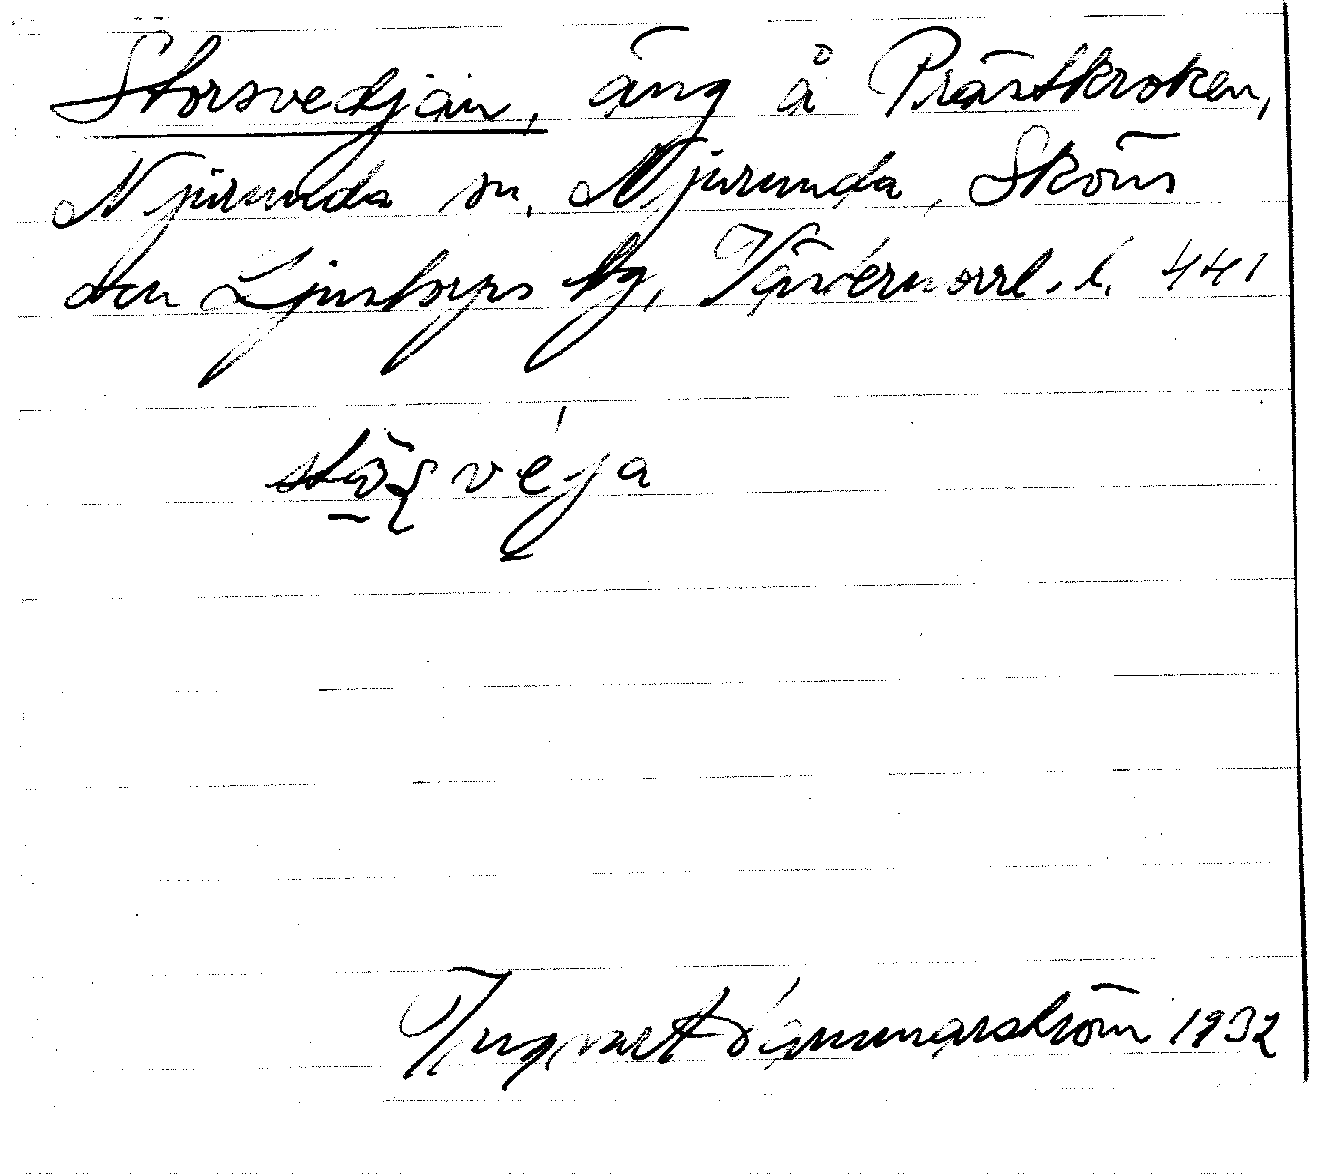 Storsvedjan, äng å Prästkroken,
Njurunda sn. Njurunda, Sköns
den Ljustorps tg, Västernorrl. l. 441
Ingvar Hammarström 1932